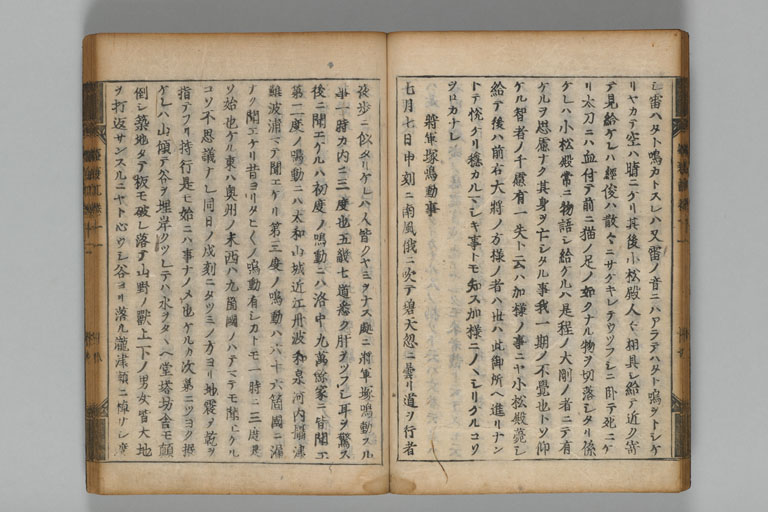 シ雷ハタト鳴カトスレハ又雷ノ音ニハアラテハタト鳴ヲトシケ
リヤカテ空ハ晴ニケリ其後小松殿人々相具シ給テ近ク寄
テ見給ケレハ經俊ハ散々ニサケキレテウツフシニ臥テ死ニケ
リ太刀ニハ血付テ前ニ猫ノ足ノ如クナル物ヲ切落シタリ係
ケレハ小松殿常ニ物語シ給ケルハ是程ノ大剛ノ者ニテ有
ケルヲ思慮ナク其身ヲ亡シタル事我一期ノ不覺也トソ仰
ケル智者ノ千慮有一失ト云ハ加様ノ事ニヤ小松殿薨シ
給テ後ハ前右大將ノ方様ノ者ハ世ハ此御所ヘ進リナン
トテ悦ケリ穏カルマシキ事トモ知ス加様ニノヽシリケルコソ
ヲロカナレ
將軍塚鳴動事
七月七日申刻ニ南風俄ニ吹テ碧天忽ニ曇リ道ヲ行者
夜歩ニ似タリケレハ人皆クヤミヲナス處ニ將軍塚鳴動スル
事一時カ内ニ三度也五畿七道悉ク肝ヲツフシ耳ヲ驚ス
後ニ聞エケルハ初度ノ鳴動ニハ洛中九萬餘家ニ皆聞エ
第二度ノ鳴動ニハ大和山城近江丹波和泉河内攝津
難波浦マテ聞エケリ第三度ノ鳴動ハ六十六箇國ニ漏
ナク聞エケリ昔ヨリタヒ〱ノ鳴動有シカトモ一時ニ三度是
ソ始也ケル東ハ奥州ノ末西ハ九箇國ノハテマテモ聞エケル
コソ不思議ナレ同日ノ戌刻ニタツミノ方ヨリ地震メ乾ヲ
指テフリ持行是モ始ニハ事ナノメ也ケルカ次第ニツヨク振
ケレハ山頽テ谷ヲ埋岸クツレテハ水ヲタヽヘ堂塔坊舎モ顛
倒シ築地タテ板モ破レ落テ山野ノ獸上下ノ男女皆大地
ヲ打返サンスルニヤト心ウシ谷ヨリ落ル瀧津頭ニ棹サシ